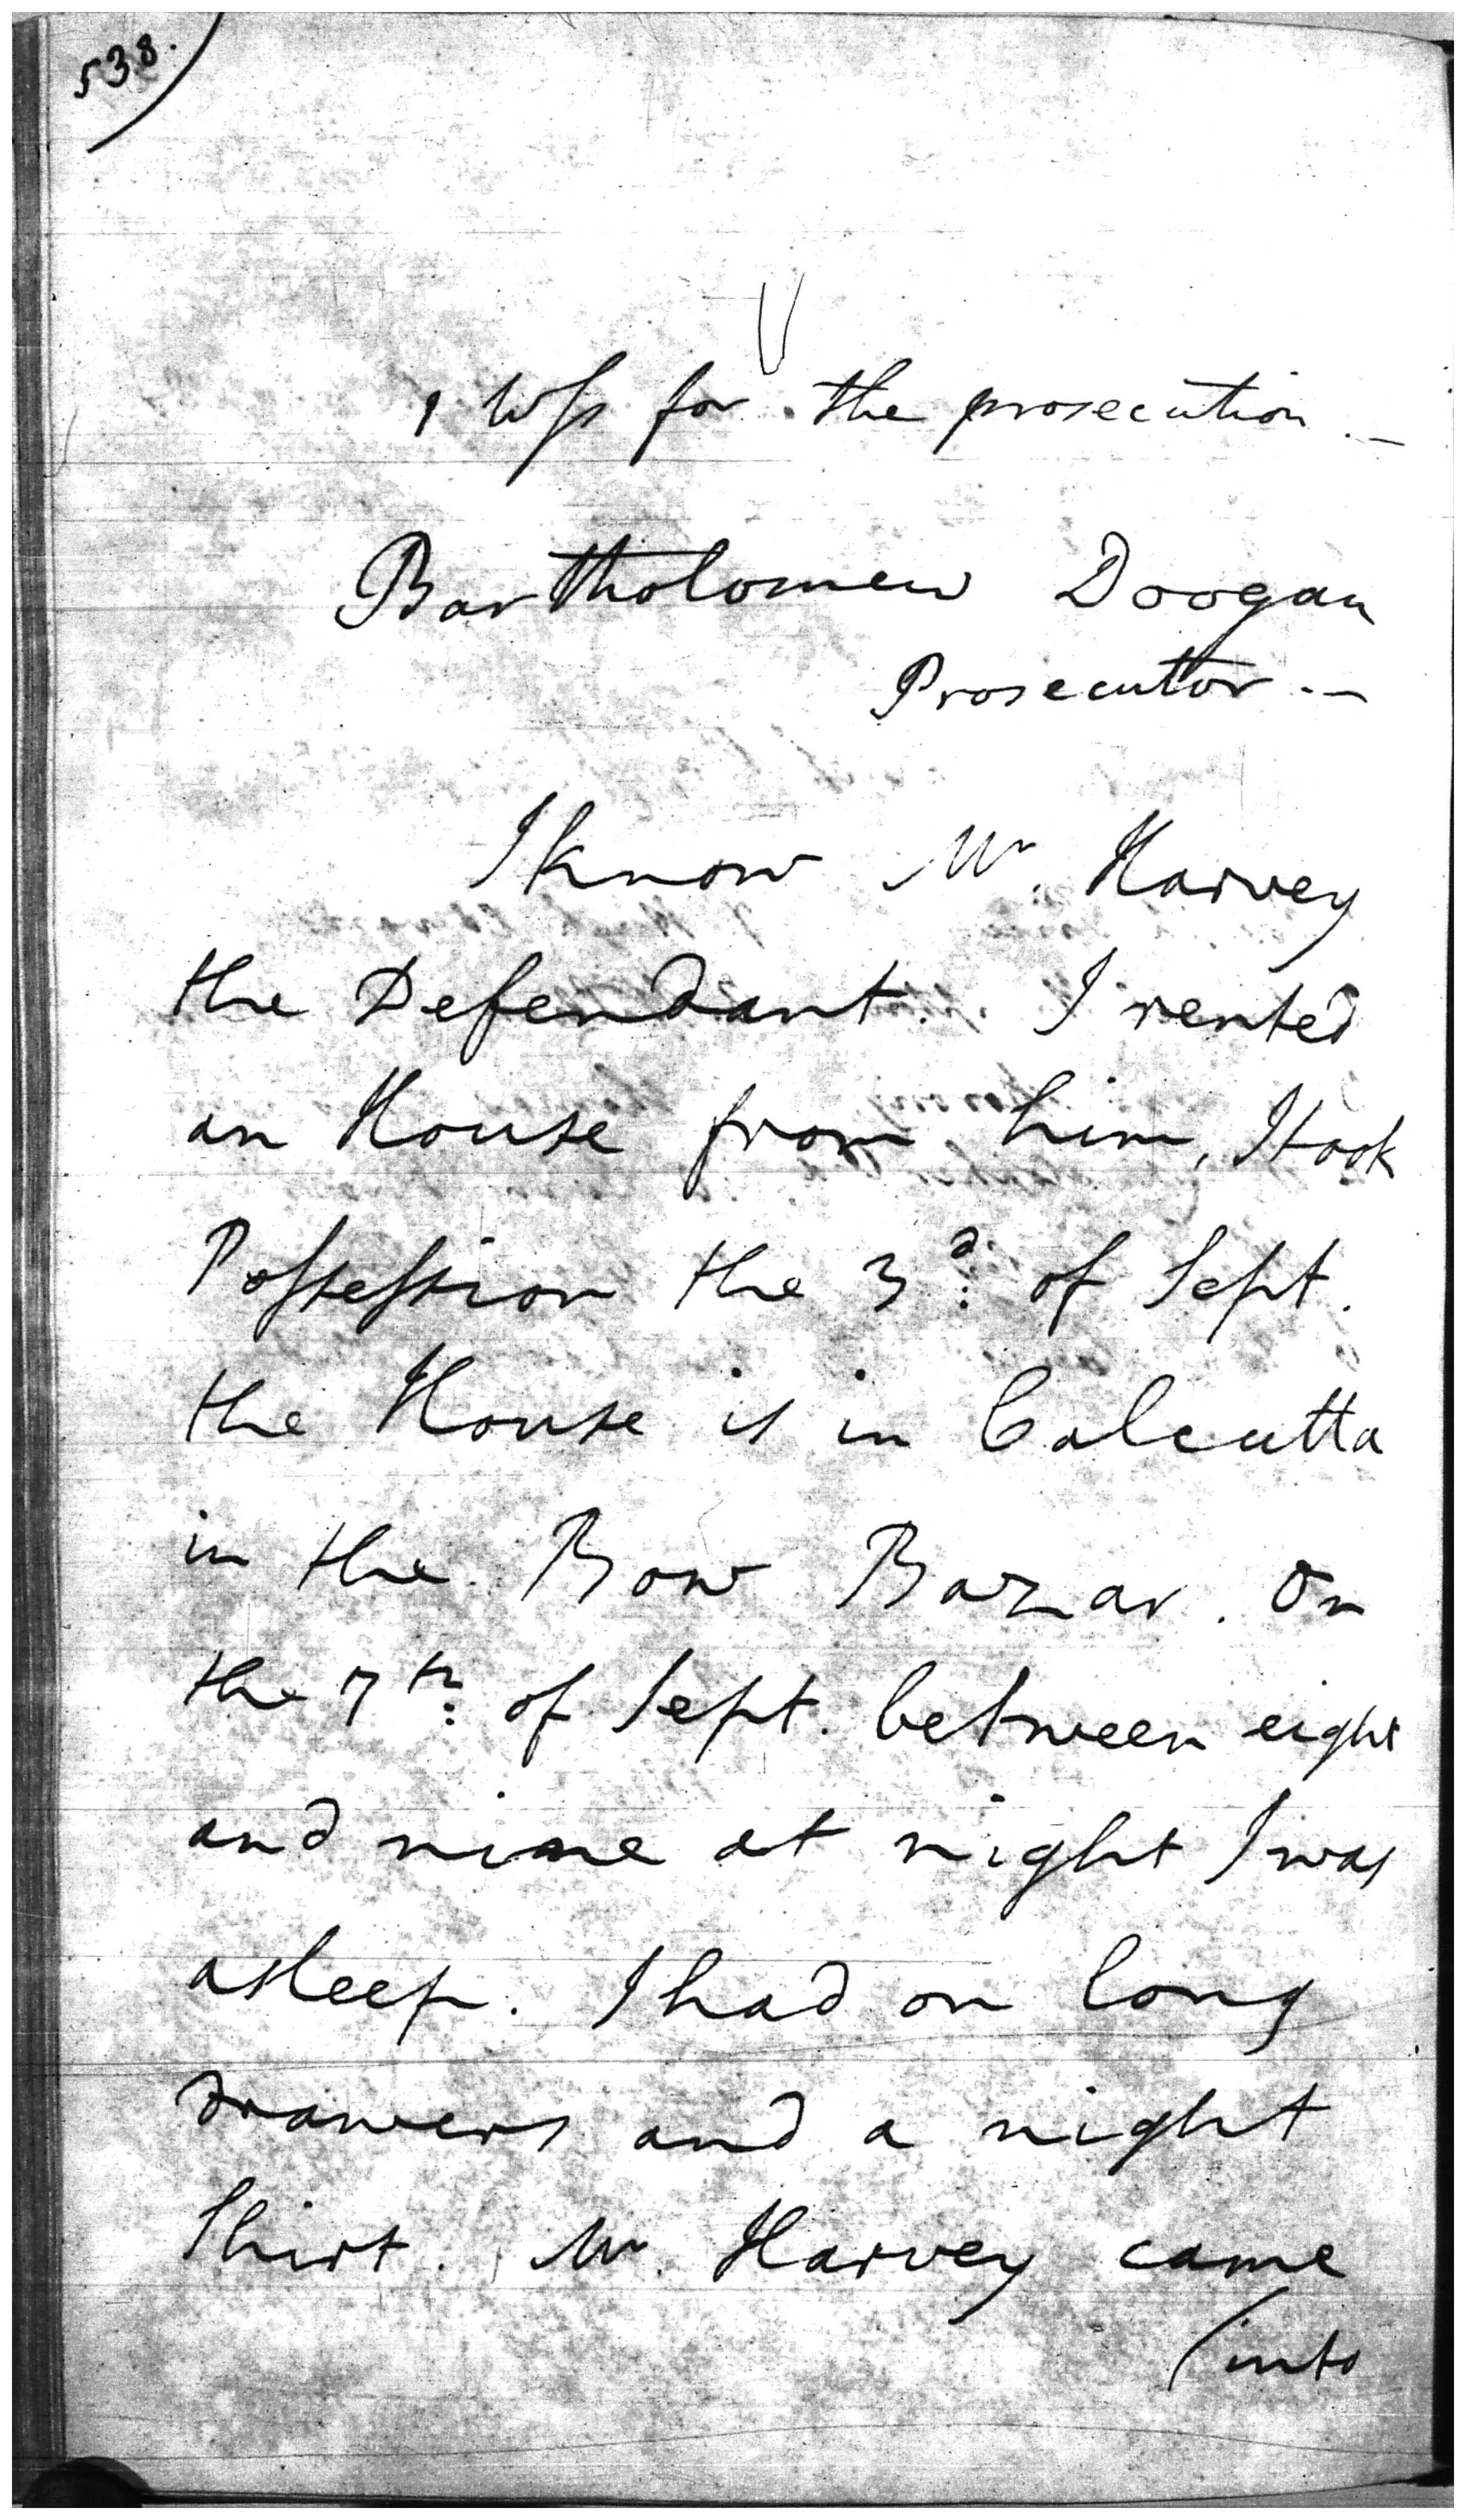 538.
1 Wss for the prosecution. —
Bartholomew Doogan
Prosecutor. —
I know Mr. Harvey
the Defendant. I rented
an House from him, I took
Possession the 3d. of Sept.
the House is in Calcutta
in the Bow Bazar. On
the 7th. of Sept. between eight
and nine at night I was
asleep. I had on long
drawers and a night
Shirt. Mr. Harvey came
(into